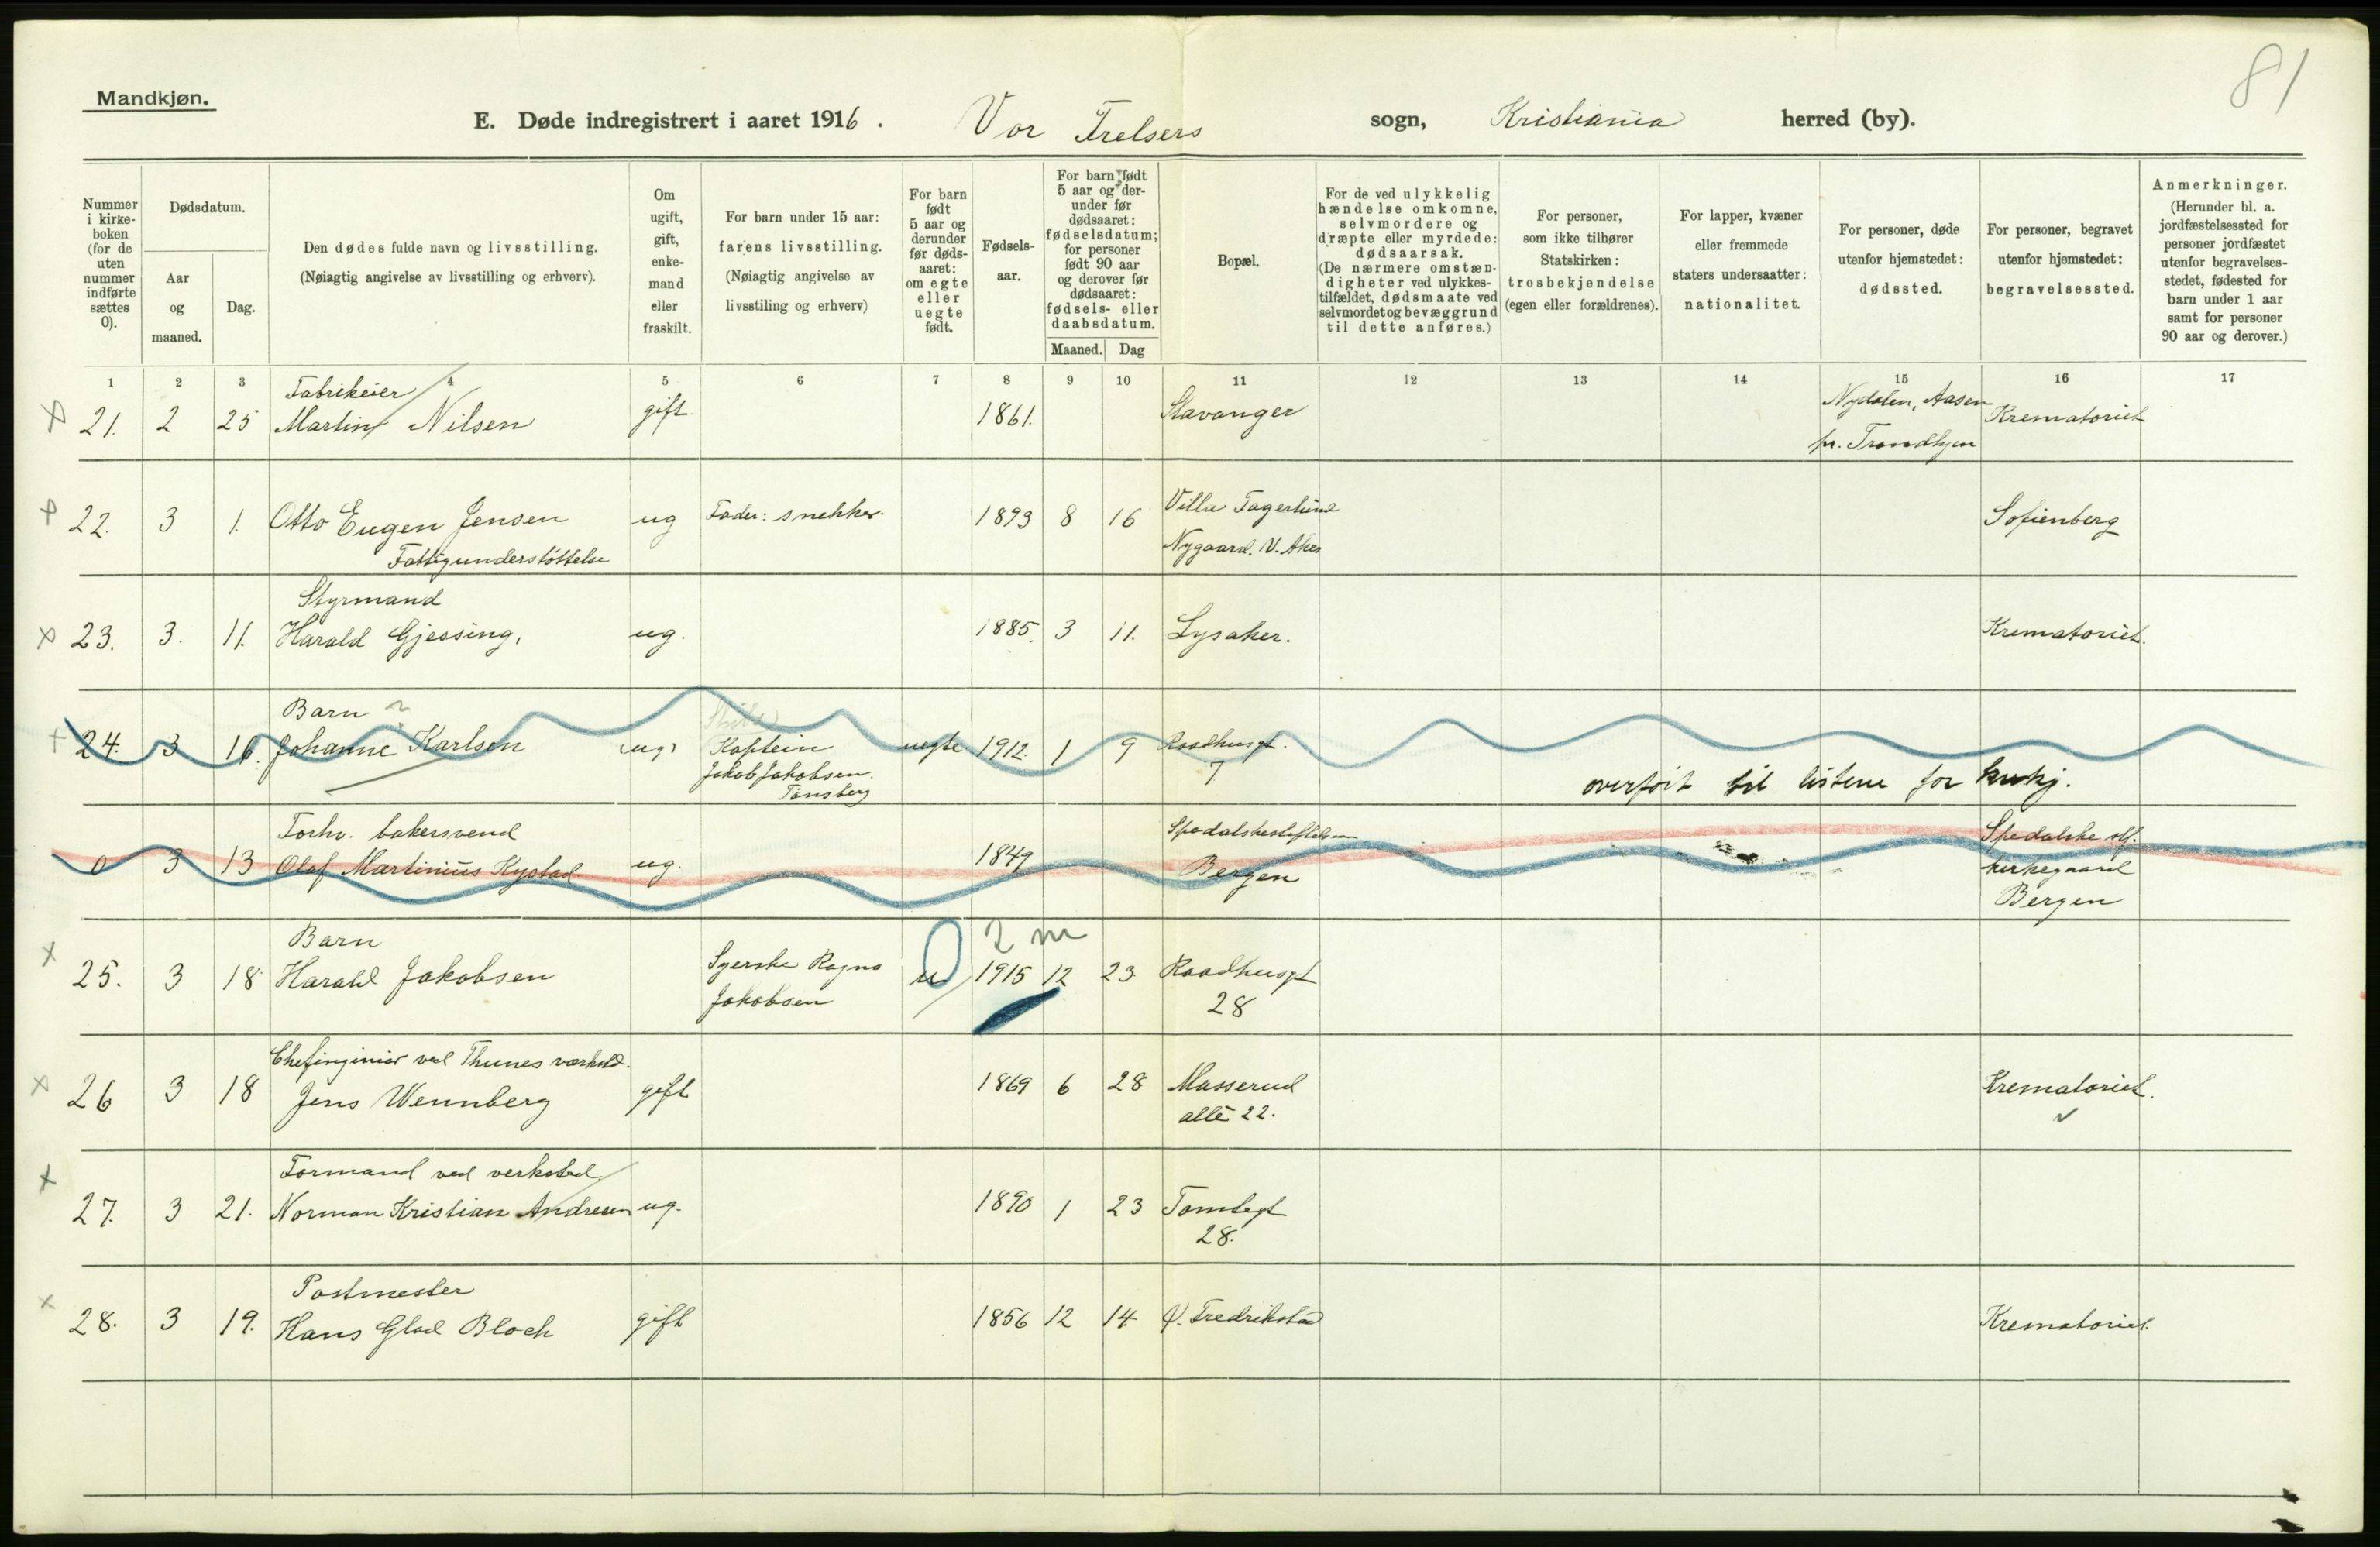 81
Mandkjøn.
E. Døde indregistrert i aaret 1916. Vor Frelsers sogn, Kristiania herred (by).
Nummer i kirke-boken (for de uten nummer indførte sættes 0).
Dødsdatum.
Aar og maaned.
Dag.
Den dødes fulde navn og livsstilling.
(Nøiagtig angivelse av livsstilling og erhverv).
Om ugift, gift, enke-mand eller fraskilt.
For barn under 15 aar: farens livsstilling.
(Nøiagtig angivelse av livsstiling og erhverv)
For barn født 5 aar og derunder før døds-aaret: om egte eller uegte født.
Fødsels-aar.
For barn født 5 aar og der-under før dødsaaret: fødselsdatum; for personer født 90 aar og derover før dødsaaret: fødsels- eller daabsdatum.
Maaned. Dag
Bopæl.
For de ved ulykkelig hændelse omkomne, selvmordere og dræpte eller myrdede: dødsaarsak.
(De nærmere omstæn-digheter ved ulykkes-tilfældet, dødsmaate ved selvmordet og bevæggrund til dette anføres.)
For personer, som ikke tilhører Statskirken: trosbekjendelse (egen eller forældrenes).
For lapper, kvæner eller fremmede staters undersaatter: nationalitet.
For personer, døde utenfor hjemstedet: dødssted.
For personer, begravet utenfor hjemstedet: begravelsessted.
Anmerkninger.
(Herunder bl. a. jordfæstelsessted for personer jordfæstet utenfor begravelses-stedet, fødested for barn under 1 aar samt for personer 90 aar og derover.)
1 2 3 4 5 6 7 8 9 10 11 12 13 14 15 16 17
Fabrikeier
21. 2 25 Martin Nilsen gift 1861. Stavanger Nydalen, Aasen Krematoriet
pr. Trondhjem
22. 3 1. Otto Eugen Jensen ug Fader: snekker. 1893 8 16 Villa Fagerlund Sofienberg
Fattigunderstöttelse Nygaard. V. Aker
Styrmand
23. 3. 11. Harald Gjessing, ug. 1885. 3 11. Lysaker. Krematoriet.
Barn ?
24. 3 16. Johanne Karlsen ug Kaptein uegte 1912. 1 9 Raadhusgt.
Jakob Jakobsen. 7
Tönsberg
overført til listene for kvkj.
Forhv. bakersvend Spedalske stf.
0 3 13 Olaf Martinius Kystad ug. 1849 Bergen kirkegaard
Bergen
Barn 2 m
25. 3 18 Harald Jakobsen Syerske Ragna u 1915 12 23 Raadhusgt
Jakobsen 28
Chefinginiör ved Thunes værksted.
26 3 18 Jens Wennberg gift 1869 6 28 Masserud Krematoriet.
allé 22.
Formand ved verksted
27. 3 21. Norman Kristian Andresen ug. 1890 1 23 Tomtegt
28.
Postmester
28. 3 19. Hans Glad Bloch gift 1856 12 14 V. Fredrikstad Krematoriet.